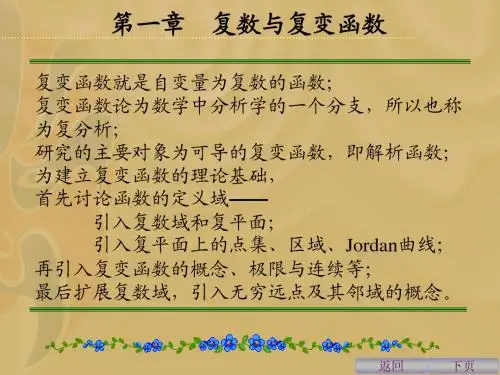 第一章 复数与复变函数
复变函数就是自变量为复数的函数;
复变函数论为数学中分析学的一个分支，所以也称
为复分析;
研究的主要对象为可导的复变函数，即解析函数;
为建立复变函数的理论基础，
首先讨论函数的定义域——
引入复数域和复平面;
引入复平面上的点集、区域、Jordan曲线;
再引入复变函数的概念、极限与连续等;
最后扩展复数域，引入无穷远点及其邻域的概念。
返回 下页